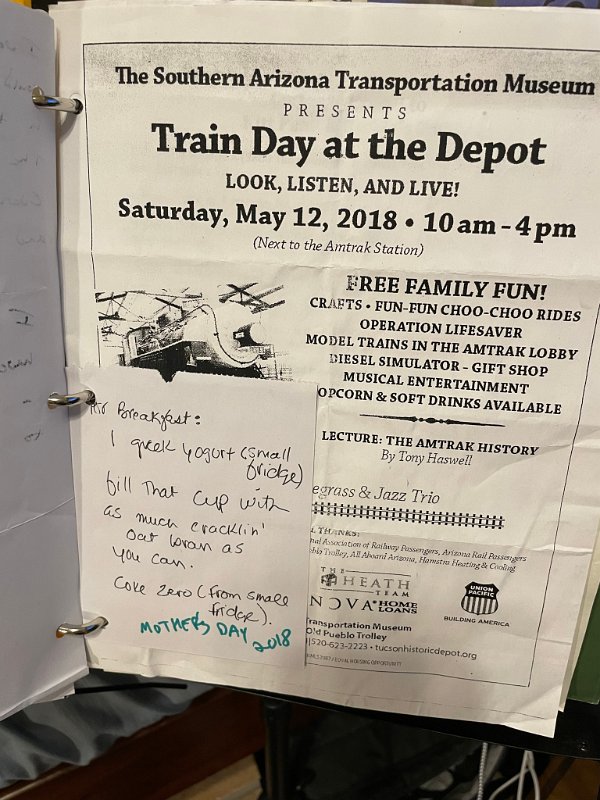 The Southern Arizona Transportation Museum
PRESENTS
Train Day at the Depot
LOOK, LISTEN, AND LIVE!
Saturday, May 12, 2018 • 10 am - 4 pm
(Next to the Amtrak Station)
FREE FAMILY FUN!
CRAFTS • FUN-FUN CHOO-CHOO RIDES
OPERATION LIFESAVER
MODEL TRAINS IN THE AMTRAK LOBBY
DIESEL SIMULATOR - GIFT SHOP
MUSICAL ENTERTAINMENT
OPCORN & SOFT DRINKS AVAILABLE
LECTURE: THE AMTRAK HISTORY
By Tony Haswell
egrass & Jazz Trio
THANKS:
nal Association of Railway Passengers, Arizona Rail Passengers
Trolley, All Aboard Arizona, Hamstra Heating & Cooling
THE
HEATH
TEAM
NOVA HOME
LOANS
UNION
PACIFIC
BUILDING AMERICA
ransportation Museum
Old Pueblo Trolley
520-623-2223 • tucsonhistoricdepot.org
EQUAL HOUSING OPPORTUNITY
Breakfast:
1 greek yogurt (small
fridge)
fill That cup with
as much cracklin'
oat bran as
you can.
Coke Zero (from small
fridge).
MOTHERS DAY
2018